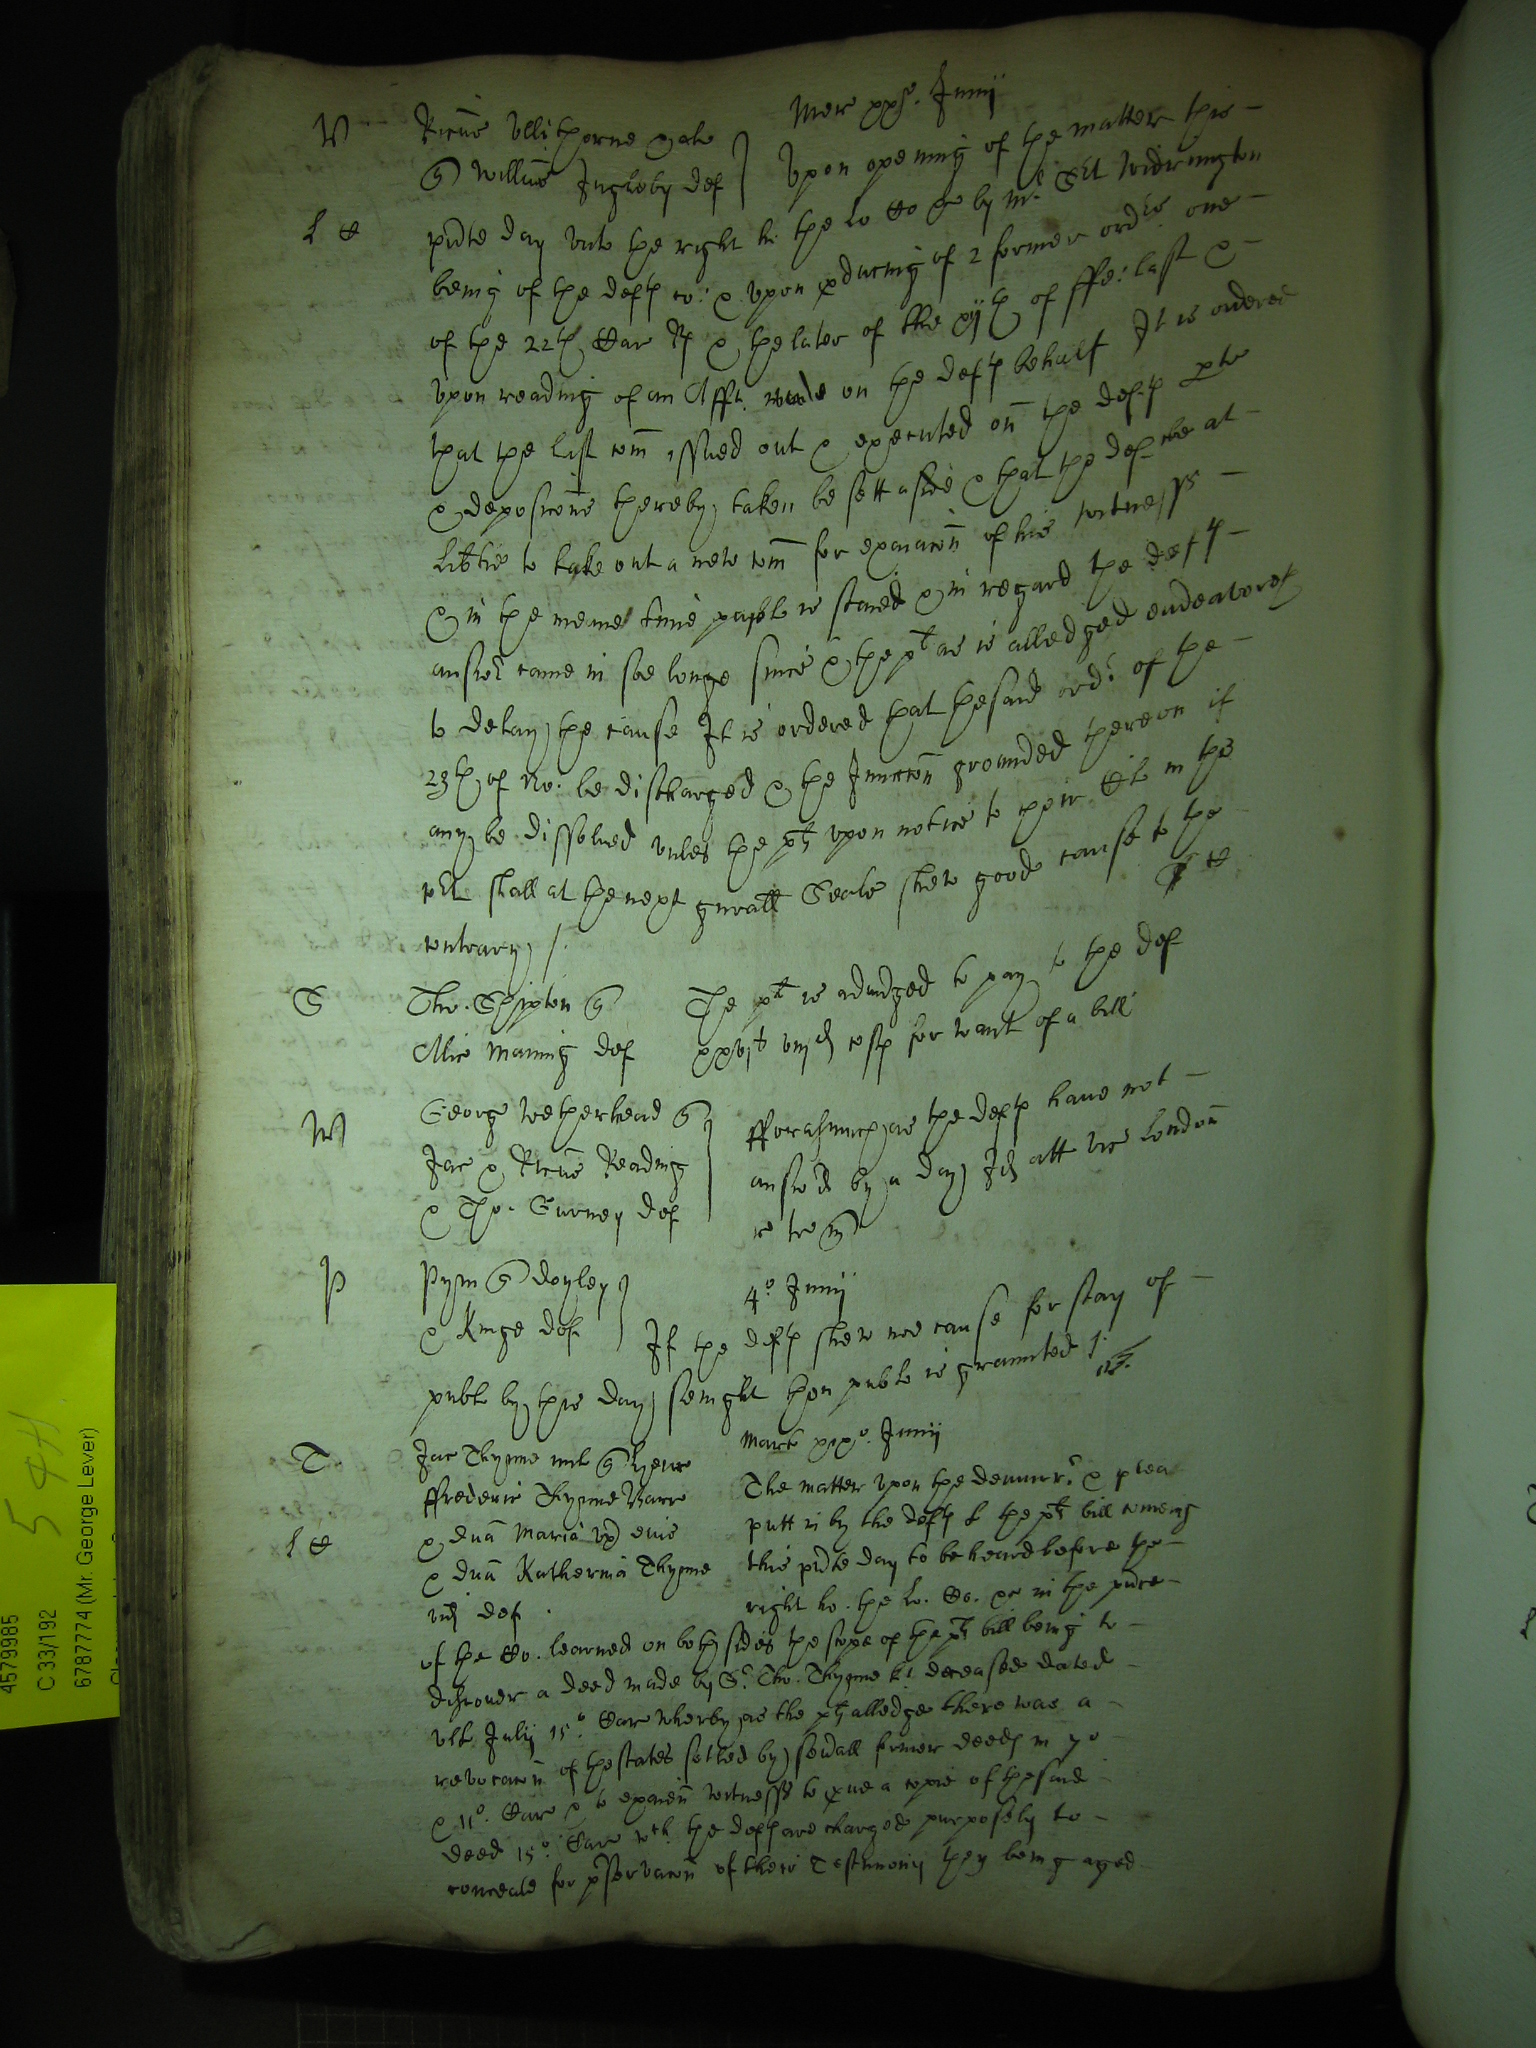 Mer xxjº. Junij
V Ricūs Ullithorne
Willūs Ingleby def Upon opening of the matter this
L C pñte day unto the right ho the Lo Co by Mr. Sit Widrington
being of the defts co: & upon pducing of 2 former ordrs. one
of the 22th Car R & the later of the xijth of ffe: last &
upon reading of an Afft. made on the defts behalf It is ordered
that the last com issued out & executed on the defts pte
& deposicons thereby taken be sett aside & that the def be at
libtie to take out a new com for exaiacon of his witnesss
& in the meane time publ is staied & in regard the defts
answer came in soe longe since & the plt as is alledged endeavoreth
to delay the cause It is ordered that the said ordr of the
23th of No. be discharged & the Iniuccon grounded thereon if
any be dissolved unles the plt upon notice to their Clk in the
shall at the next gnrall Seale shew good cause to the
contrary /.
S Tho. Shipton The plt is adiudged to pay to the def
Alic Manning def xxvjs viijd costs for want of a bill
W George Wetherhead fforasmuch as the defts have not
Jac & Ricūs Reading answ'd by a day Id att vic London
& Tho. Gurney def
P Pym Doyley 4º Junij
& Kinge def If the defts shew noe cause for stay of
publ by this day sevnight then publ is graunted
Mart xixº. Junij
T Jac Thynne mil henr
ffrederic Thynne Barr The matter upon the demurr. & plea
L C & dnā Mariā ux eius putt in by the defts to the plts bill coming
& dnā Katherinā Thynne this pñte day to be heard before the
vid def. right ho. the Lo. Co. &c in the pñce
of the Co. learned on both sides the scope of the plts bill being to
discover a deed made by Sr. Tho. Thynne kt. deceased dated
ult July 15º. Car wherby as the plts alledge there was a
revocacon of the states setled by sevall former deeds in 7º
& 11º. Car & to exaien witnesss to pve a copie of the said
deed 15º. Car wch. the defts are charged purposely to
conceale for pservacon of their Testimony they being aged
4579985
C 33/192
6787774 (Mr. George Lever)